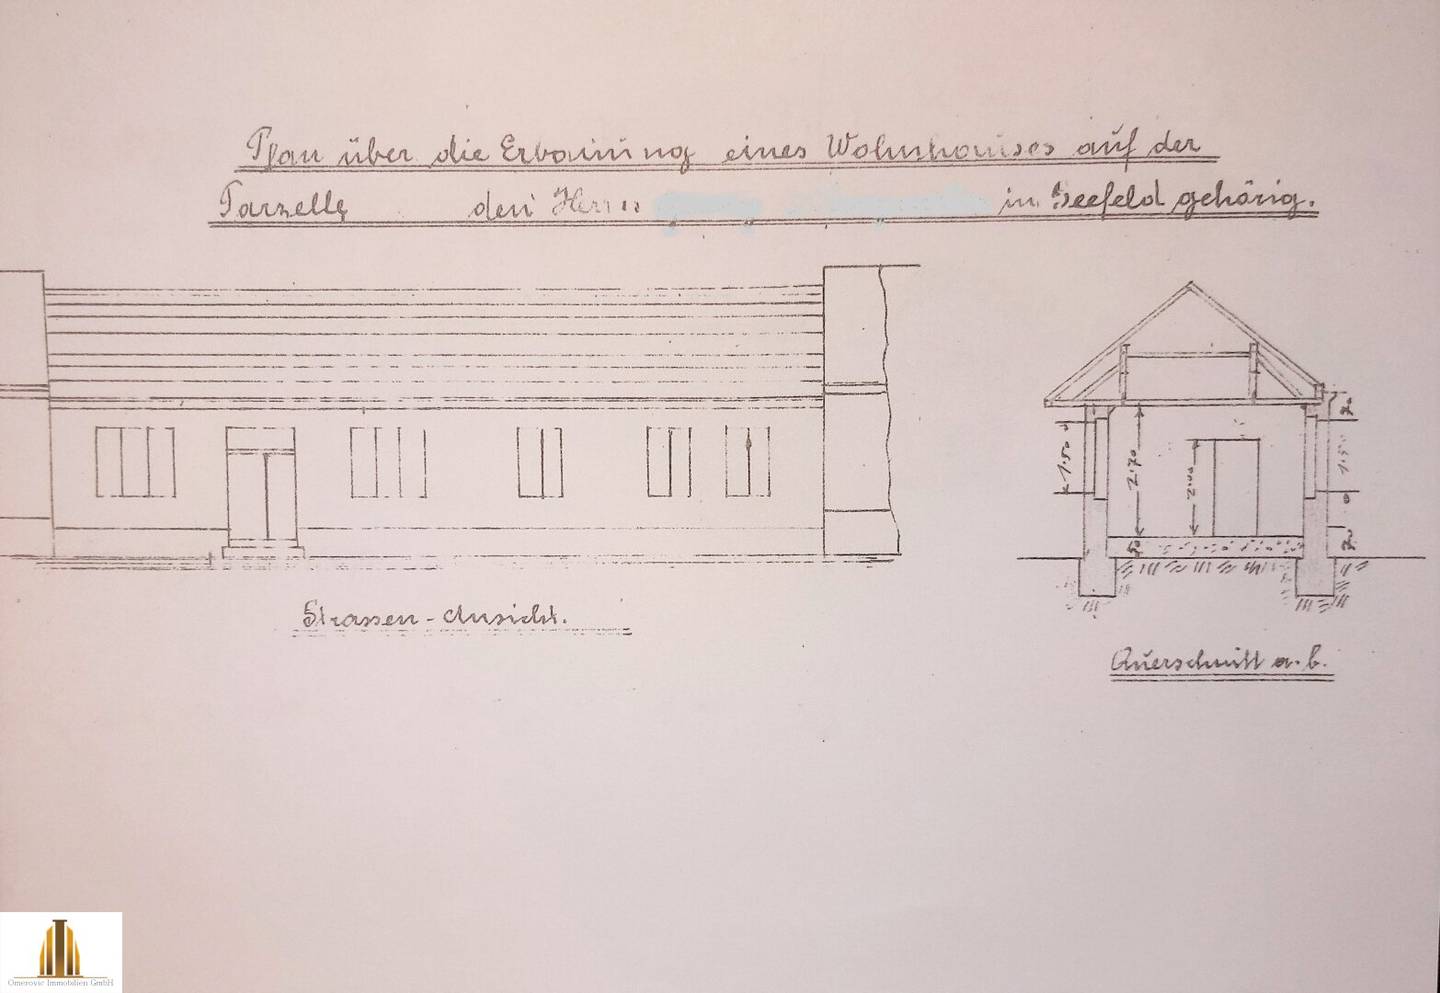 Plan über die Erbauung eines Wohnhauses auf der
Parzelle den Herrn in Seefeld gehörig.
1.50
2.70
2.00
50
70
1.50
70
Strassen-Ansicht.
Querschnitt a.b.
Omerovic Immobilien GmbH